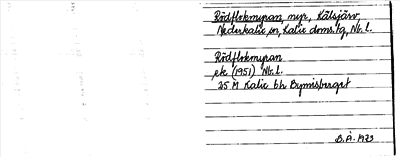 Rödflokmyran, myr, Kälsjärv,
Nederkalix sn, Kalix doms.tg, Nb. l.
Rödflokmyran
ek (1951) Nb. l.
25 M Kalix bl. Bymisberget
B. Å. 1973